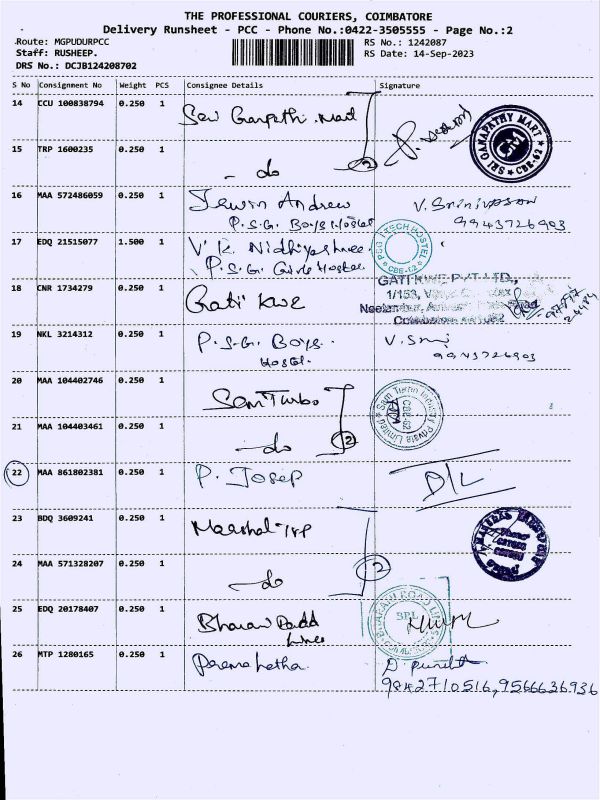 THE PROFESSIONAL COURIERS, COIMBATORE
Delivery Runsheet - PCC - Phone No.:0422-3505555 - Page No.:2
Route: MGPUDURPCC
RS No.: 1242087
Staff: RUSHEEP.
RS Date: 14-Sep-2023
DRS No.: DCJB124208702
S No Consignment No Weight PCS Consignee Details Signature
14 CCU 100838794 0.250 1
SRI GANAPATHY MART CBE-62
15 TRP 1600235 0.250 1 - do 2
16 MAA 572486059 0.250 1 Jewin Andrew
P.S.G. Boys Hostel
V. Srinivasan
9943726903
17 EDQ 21515077 1.500 1 V.K. Nidhiyashree.
P.S.G. Girls Hostel
PSG iTECH HOSTEL CBE-62
18 CNR 1734279 0.250 1 Gati Kwe
GATI KWE PVT LTD.,
1/153,
19 NKL 3214312 0.250 1 P.S.G. Boys.
Hostel.
V. Sri
9943726903
20 MAA 104402746 0.250 1 Sam Turbo
Sam Turbo Industry Private Limited CBE-62
21 MAA 104403461 0.250 1 - do 2
22 MAA 861802381 0.250 1 P. Josep D/L
23 BDQ 3609241 0.250 1
24 MAA 571328207 0.250 1 - do 2
25 EDQ 20178407 0.250 1
26 MTP 1280165 0.250 1 Prema Latha.
9842710516, 9566636936